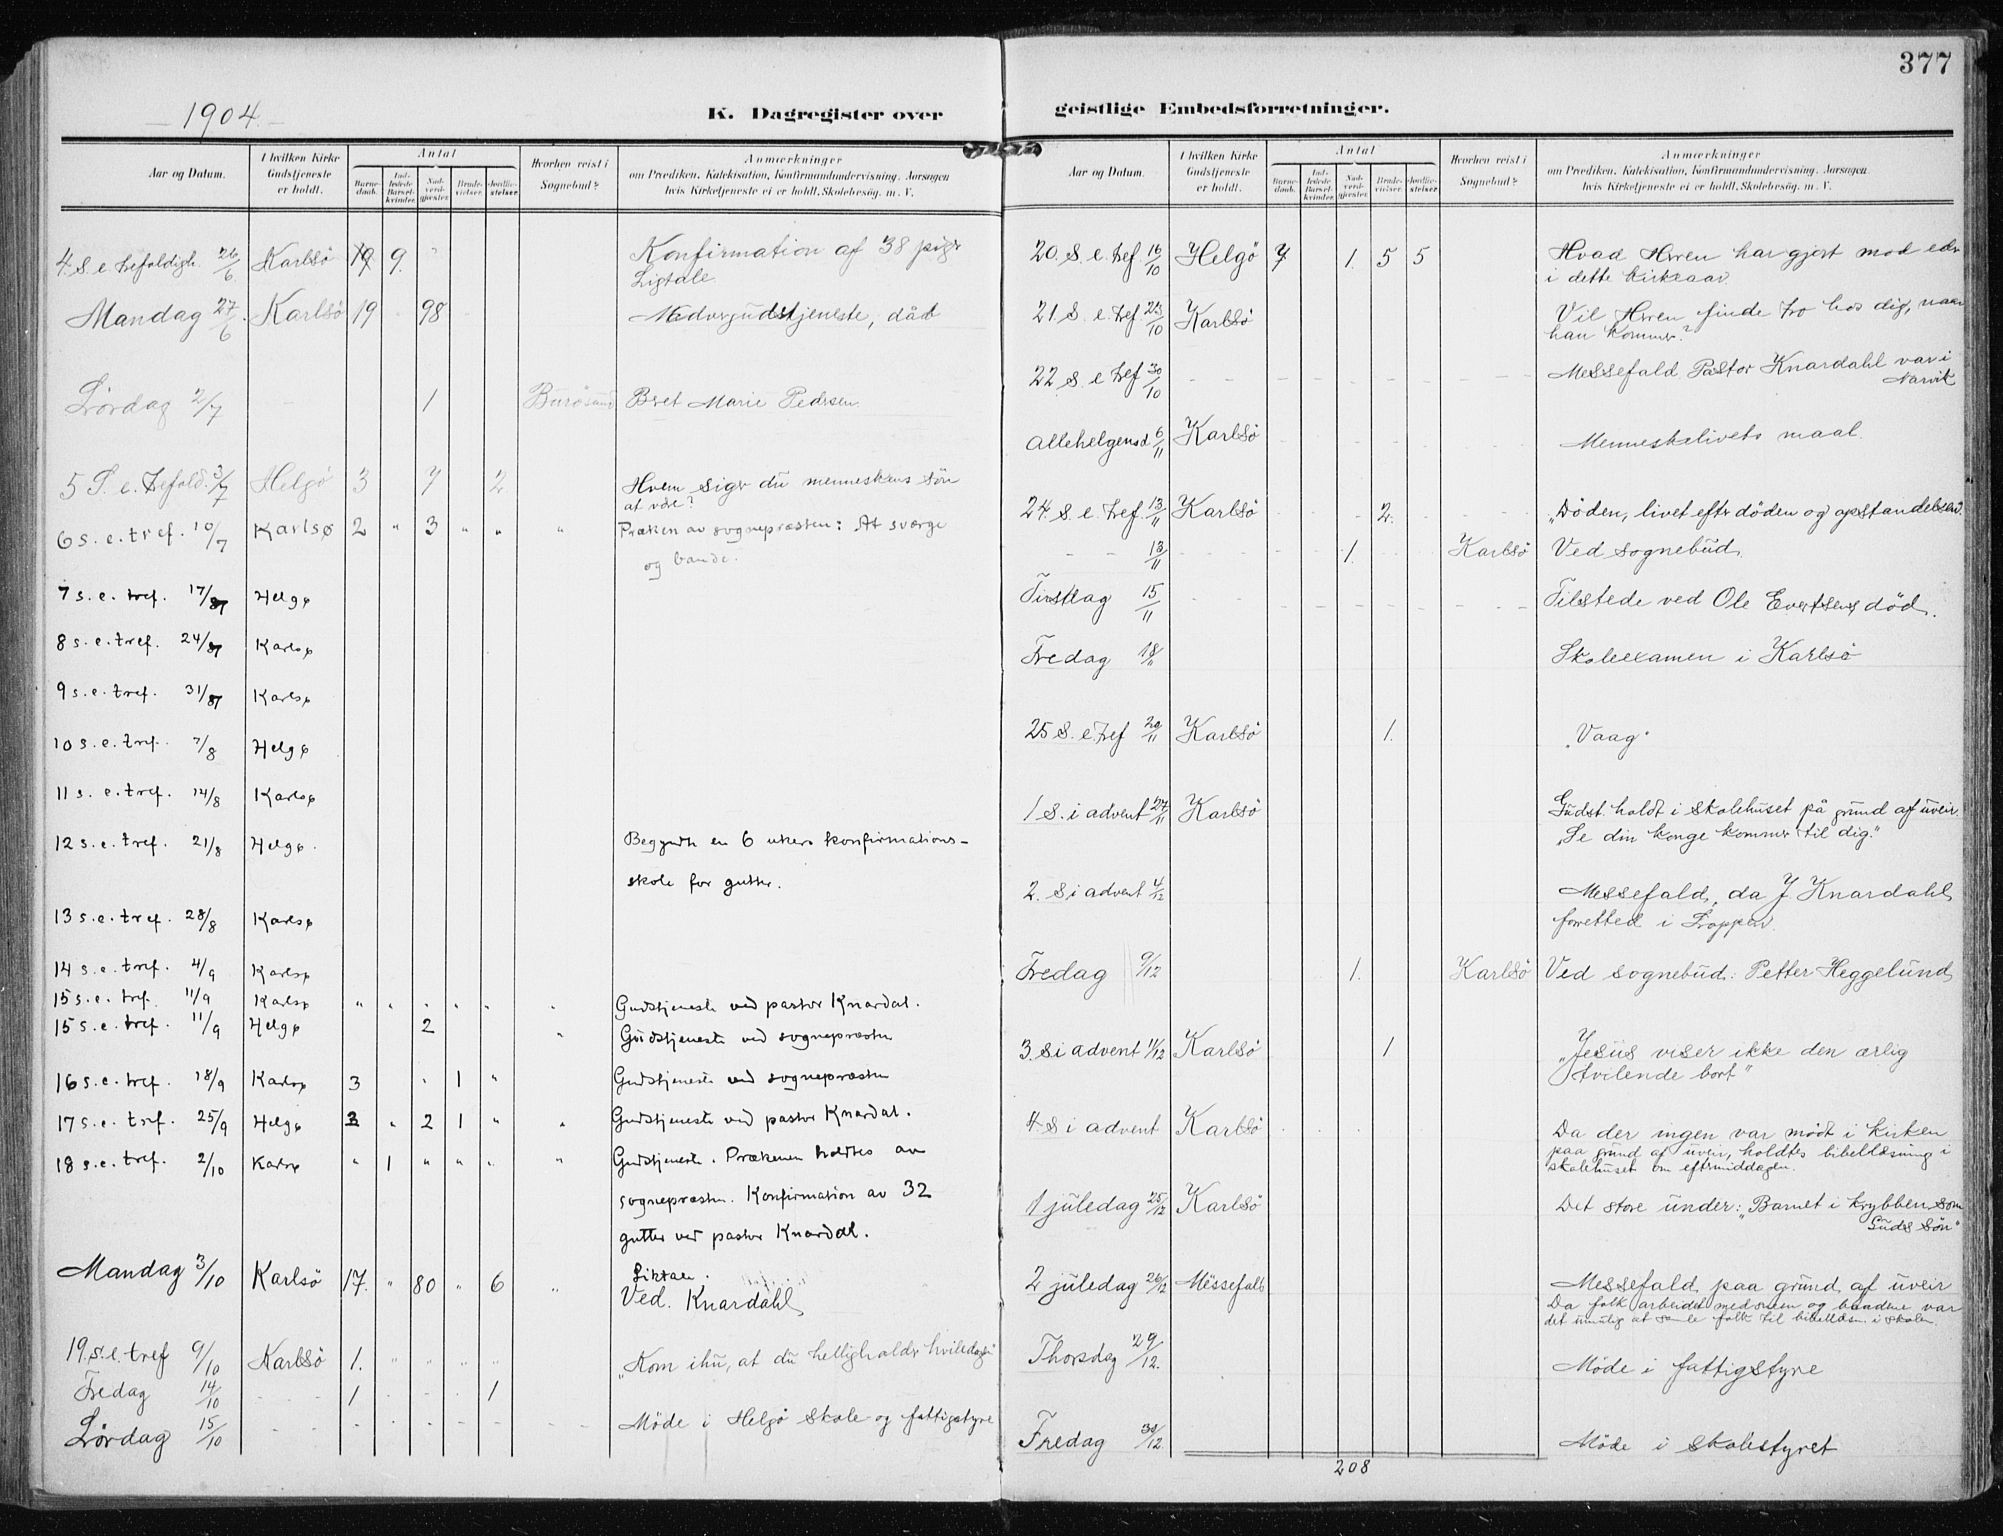 377
1904.
K. Dagregister over geistlige Embedsforretninger.
Aar og Datum.
I hvilken Kirke Gudstjeneste er holdt.
Antal
Barnedaab.
Indledede Barselkvinder.
Nadverdgjæster.
Brudevielser.
Jordfæstelser.
Hvorhen reist i Sognebud?
Anmærkninger
om Prædiken, Katekisation, Konfirmandundervisning, Aarsagen
hvis Kirketjeneste ei er holdt, Skolebesøg, m. V.
4. S. e. trefoldigh. 26/6 Karlsö 9. Konfirmation af 38 piger
Ligtale.
Mandag 27/6 Karlsö 19 98
Lördag 2/7 1 Burösund Bret Marie Pedersen.
5 S. e. trefold. 3/7 Helgö 3 7 2 Hvem siger du menneskens sön
at være?
6 s. e. tref. 10/7 Karlsø 2 " 3 " " " Præken av sognepræsten: At sværge
og bande.
7 s. e. tref. 17/7 Helgø
8 s. e. tref. 24/7 Karlsø
9 s. e. tref. 31/7 Karlsø
10 s. e. tref. 7/8 Helgø
11 s. e. tref. 14/8 Karlsø
12 s. e. tref. 21/8 Helgø. Begyndte en 6 ukers konfirmations-
skole for gutter.
13 s. e. tref. 28/8 Karlsø
14 s. e. tref. 4/9 Karlsø
15 s. e. tref. 11/9 Karlsø " " " " " " Gudstjeneste ved pastor Knardal.
15 s. e. tref. 11/9 Helgø 2 " Gudstjeneste ved sognepræsten
16 s. e. tref. 18/9 Karlsø 3 " 1 " Gudstjeneste ved sognepræsten
17 s. e. tref. 25/9 Helgø 3 " 2 1 " " Gudstjeneste ved pastor Knardal.
18 s. e. tref. 2/10 Karlsø " 1 " " " " Gudstjeneste. Prækenen holdtes av
sognepræsten. Konfirmation av 32
gutter ved pastor Knardal.
Mandag 3/10 Karlsö 17. " 80 " 6 " Liktale.
Ved. Knardahl
19. s. e. tref 9/10 Karlsö 1. " " " " "Kom ihu, at du helligholder hviledagen"
Fredag 14/10 1 1
Lördag 15/10 Möde i Helgö skole og fattigstyre
Aar og Datum.
I hvilken Kirke Gudstjeneste er holdt.
Antal
Barnedaab.
Indledede Barselkvinder.
Nadverdgjæster.
Brudevielser.
Jordfæstelser.
Hvorhen reist i Sognebud?
Anmærkninger
om Prædiken, Katekisation, Konfirmandundervisning, Aarsagen
hvis Kirketjeneste ei er holdt, Skolebesøg, m. V.
20. S. e. tref 16/10 Helgö 7 1. 5 5 Hvad Herren har gjort mod eder
i dette kirkeaar
21 S. e. tref 23/10 Karlsö Vil Herren finde tro hos dig, naar
han kommer?
22 S. e tref 30/10 Messefald Pastor Knardahl var i
Narvik
Allehelgensd 6/11 Karlsö Menneskelivets maal.
24. s. e. tref. 13/11 Karlsö 2. "Döden, livet efter döden og opstandelsen."
13/11 1. Karlsö Ved sognebud
Tirsdag 15/11 Tilstede ved Ole Evertsens död.
Fredag 18/11 Skoleexamen i Karlsö
25 S. e. tref 20/11 Karlsö 1. "Vaag"
1 S. i advent 27/11 Karlsö Gudst. holdt i skolehuset på grund af uveir.
"Se din konge kommer til dig."
2. S i advent 4/12 Messefald, da J. Knardahl
forretted i Loppen.
Fredag 9/12 1. Karlsö Ved sognebud. Petter Heggelund
3. S i advent 11/12 Karlsö 1 "Jesus viser ikke den ærlig
tvilende bort"
4. S i advent Karlsö Da der ingen var mödt i kirken
paa grund af uveir, holdtes bibellæsning i
skolehuset om eftermiddagen.
1 juledag 25/12 Karlsö Det store under: "Barnet i krybben som
Guds Sön"
2 juledag 26/12 Messefald Messefald paa grund af uveir
Da folk arbeidet med sneen og baadene var
det umulig at samle folk til bibellæsn. i skolen.
Thorsdag 29/12. Möde i fattigstyre
Fredag 30/12 Möde i skolestyret
208